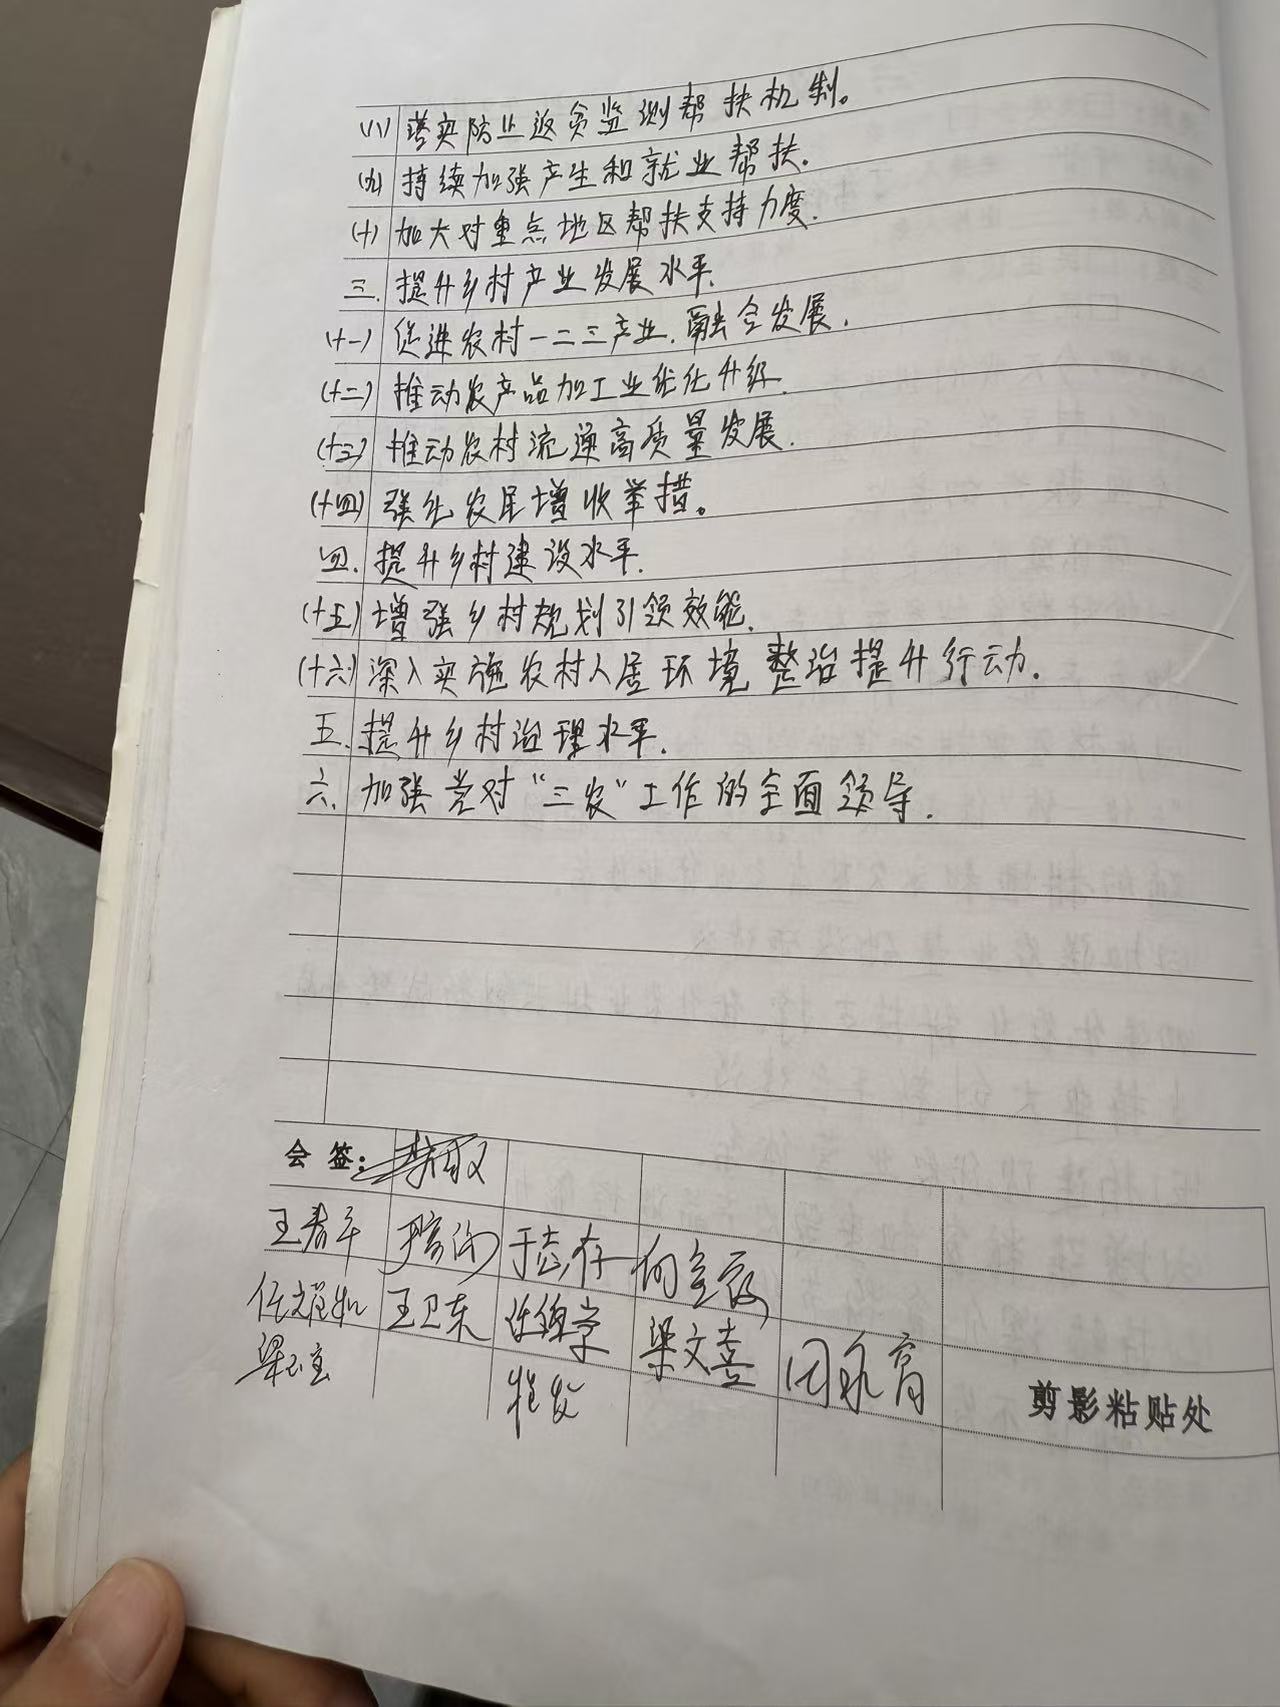 (八) 落实防止返贫监测帮扶机制。
(九) 持续加强产生和就业帮扶.
(十) 加大对重点地区帮扶支持力度.
三. 提升乡村产业发展水平.
(十一) 促进农村一二三产业.融合发展.
(十二) 推动农产品加工业优化升级.
(十三) 推动农村流通高质量发展.
(十四) 强化农民增收举措。
四. 提升乡村建设水平.
(十五) 增强乡村规划引领效能.
(十六) 深入实施农村人居环境整治提升行动.
五. 提升乡村治理水平.
六. 加强党对“三农”工作的全面领导.
会 签:
王春平 于志存
王卫东 梁文喜 田永育
剪影粘贴处